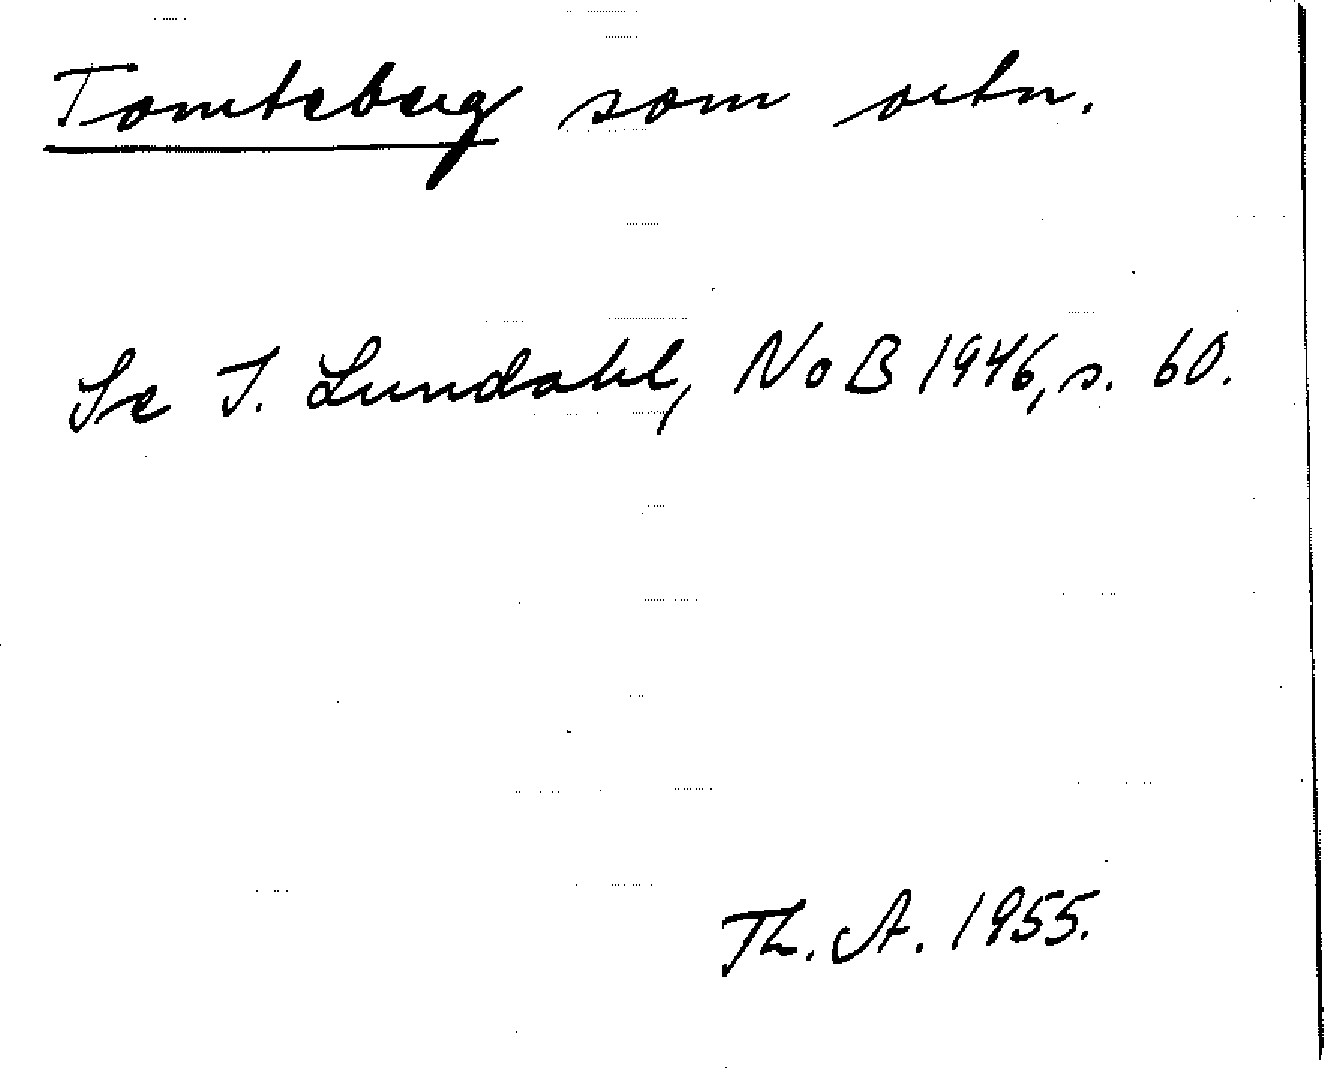 Tomteberg som ortn.
Se I. Lundahl, NoB 1946, s. 60.
Th. A. 1955.